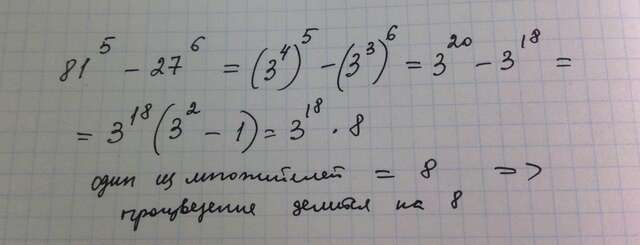 81⁵ − 27⁶ = (3⁴)⁵ − (3³)⁶ = 3²⁰ − 3¹⁸ =
= 3¹⁸(3² − 1) = 3¹⁸ · 8
один из множителей = 8 =>
произведение делится на 8